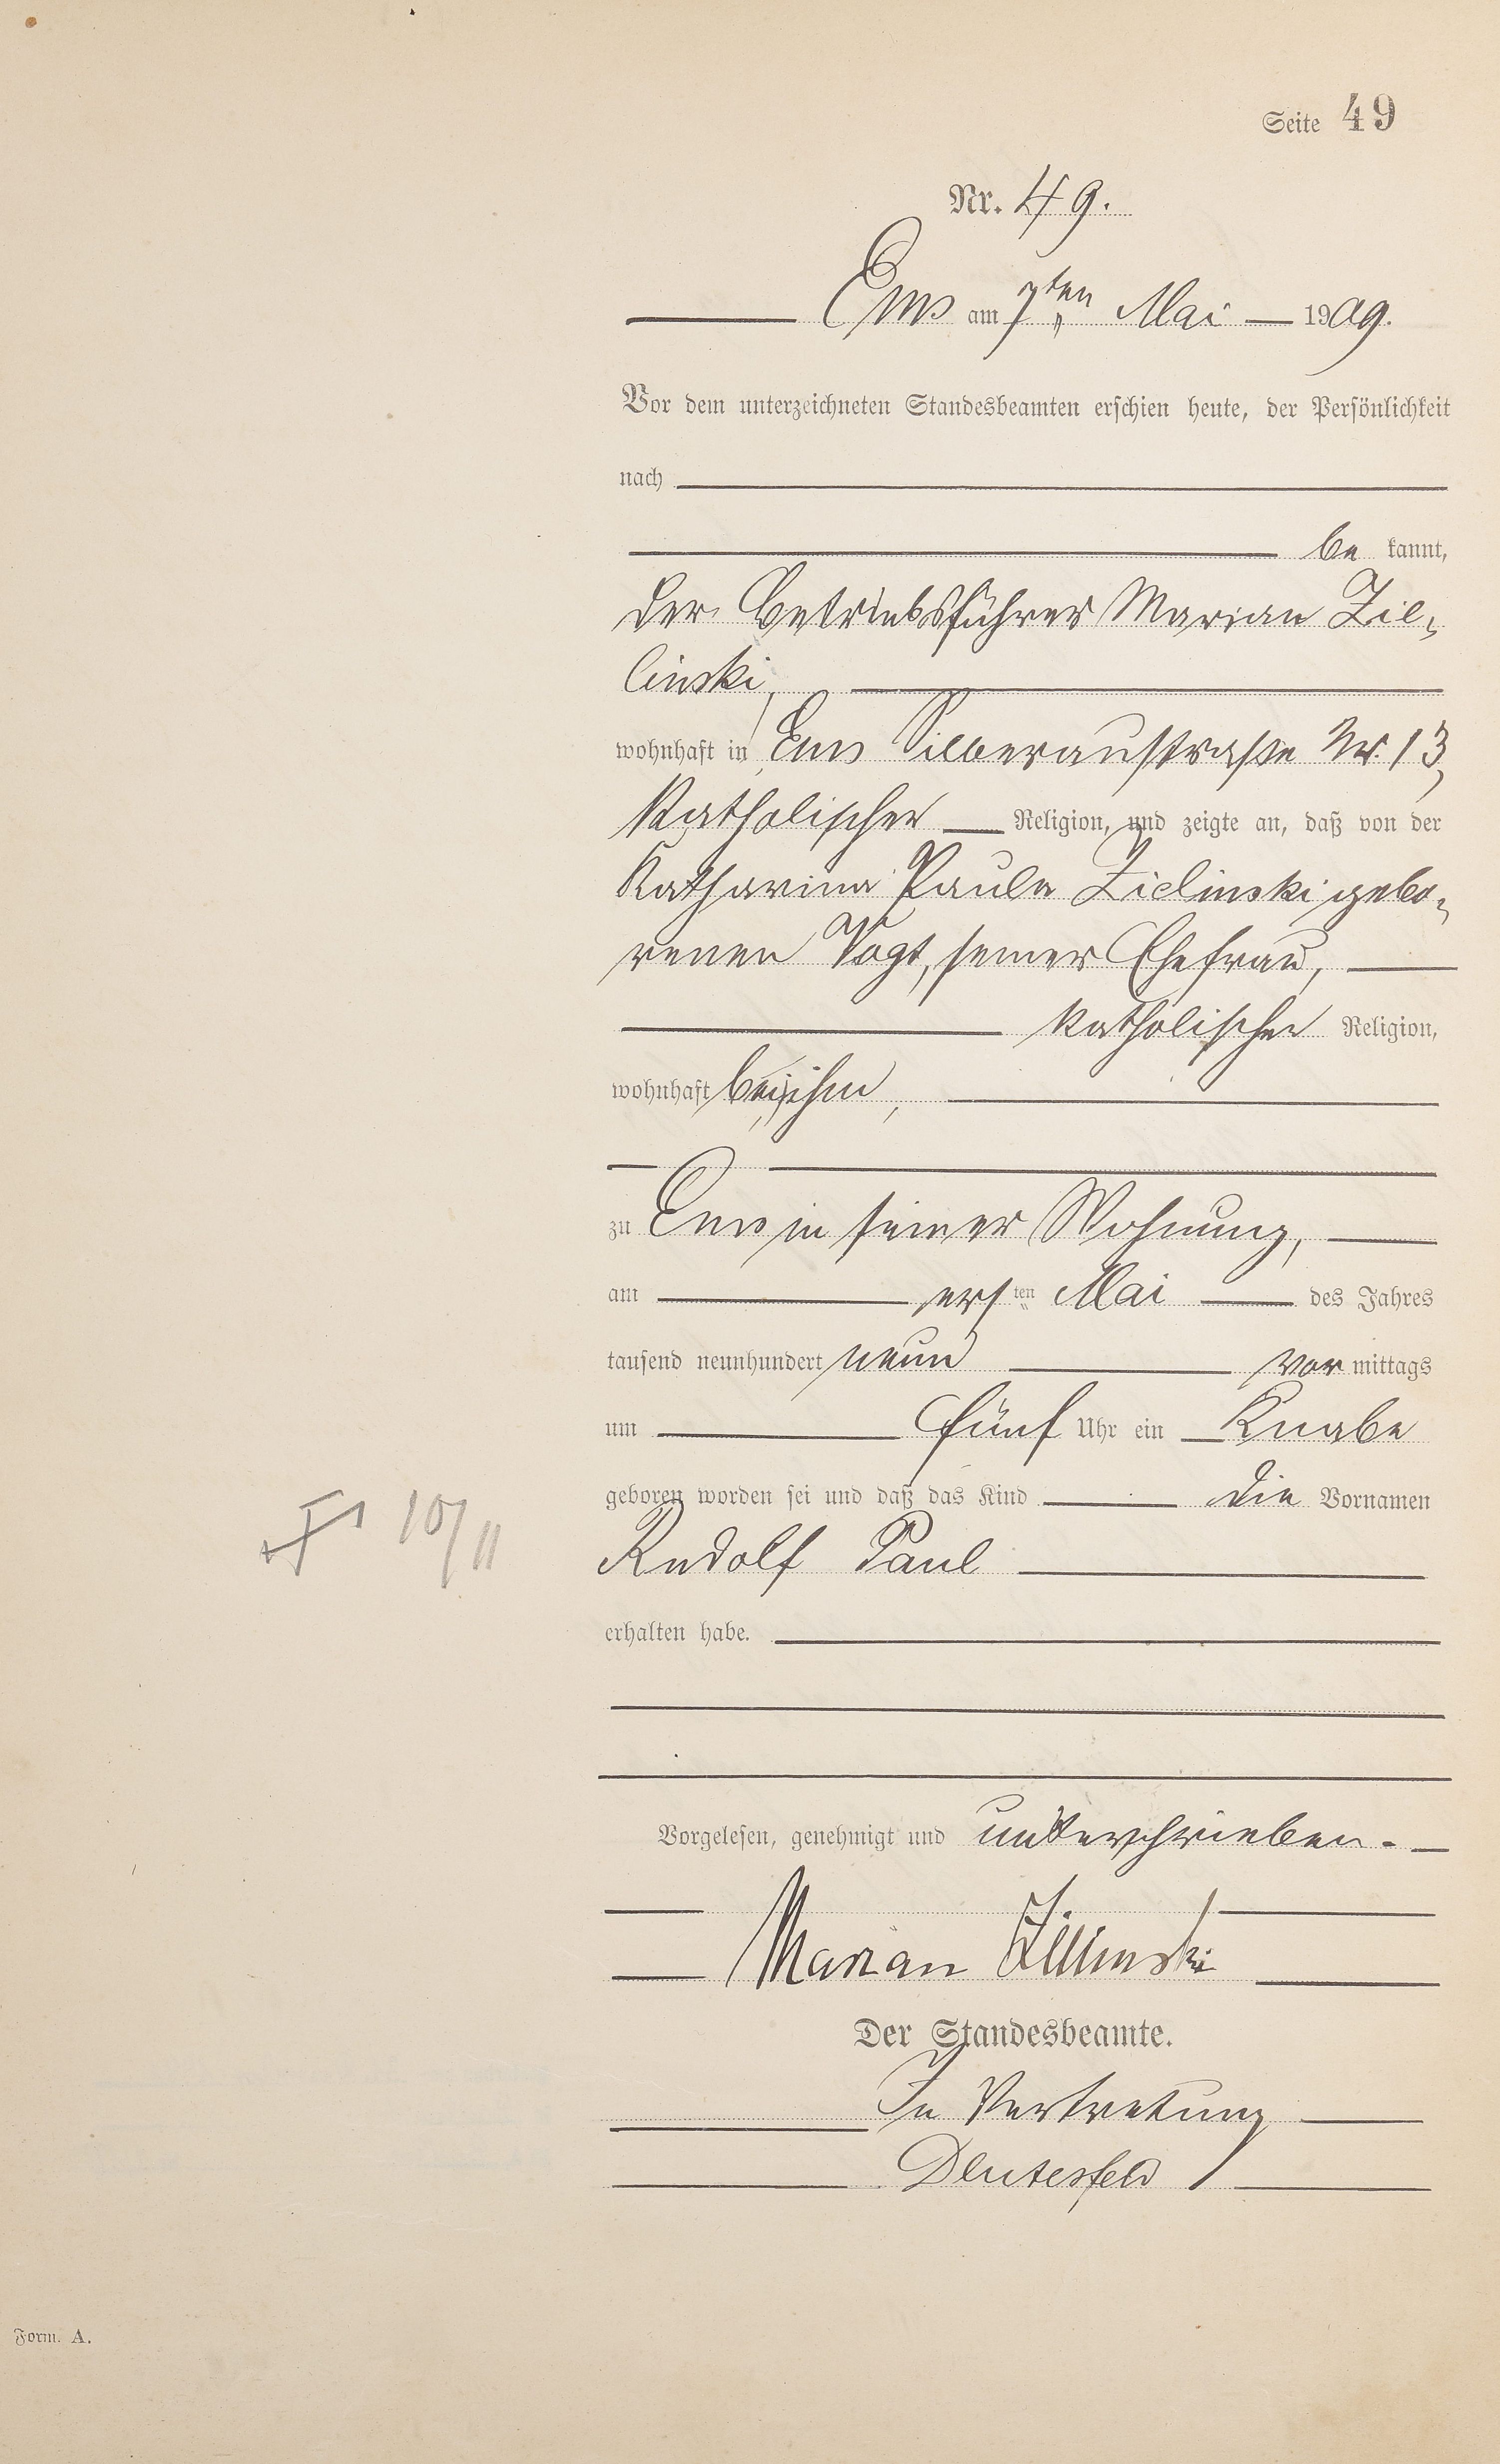 Seite 49
Nr. 49.
Ems am 7ten Mai 1909.
Vor dem unterzeichneten Standesbeamten erschien heute, der Persönlichkeit
nach
be kannt,
der Betriebsführer Marian Zie-
linski,
wohnhaft in Ems Silberaustraße Nr. 13,
katholischer Religion, und zeigte an, daß von der
Katharina Paula Zielinski gebo-
renen Vogt, seiner Ehefrau,
katholischer Religion,
wohnhaft bei ihm,
zu Ems in seiner Wohnung,
am ersten Mai des Jahres
tausend neunhundert neun vor mittags
um fünf Uhr ein Knabe
geboren worden sei und daß das Kind die Vornamen
10/11
Rudolf Paul
erhalten habe.
Vorgelesen, genehmigt und unterschrieben.
Marian Zielinski
Der Standesbeamte.
In Vertretung
Deutesfeld
Form. A.